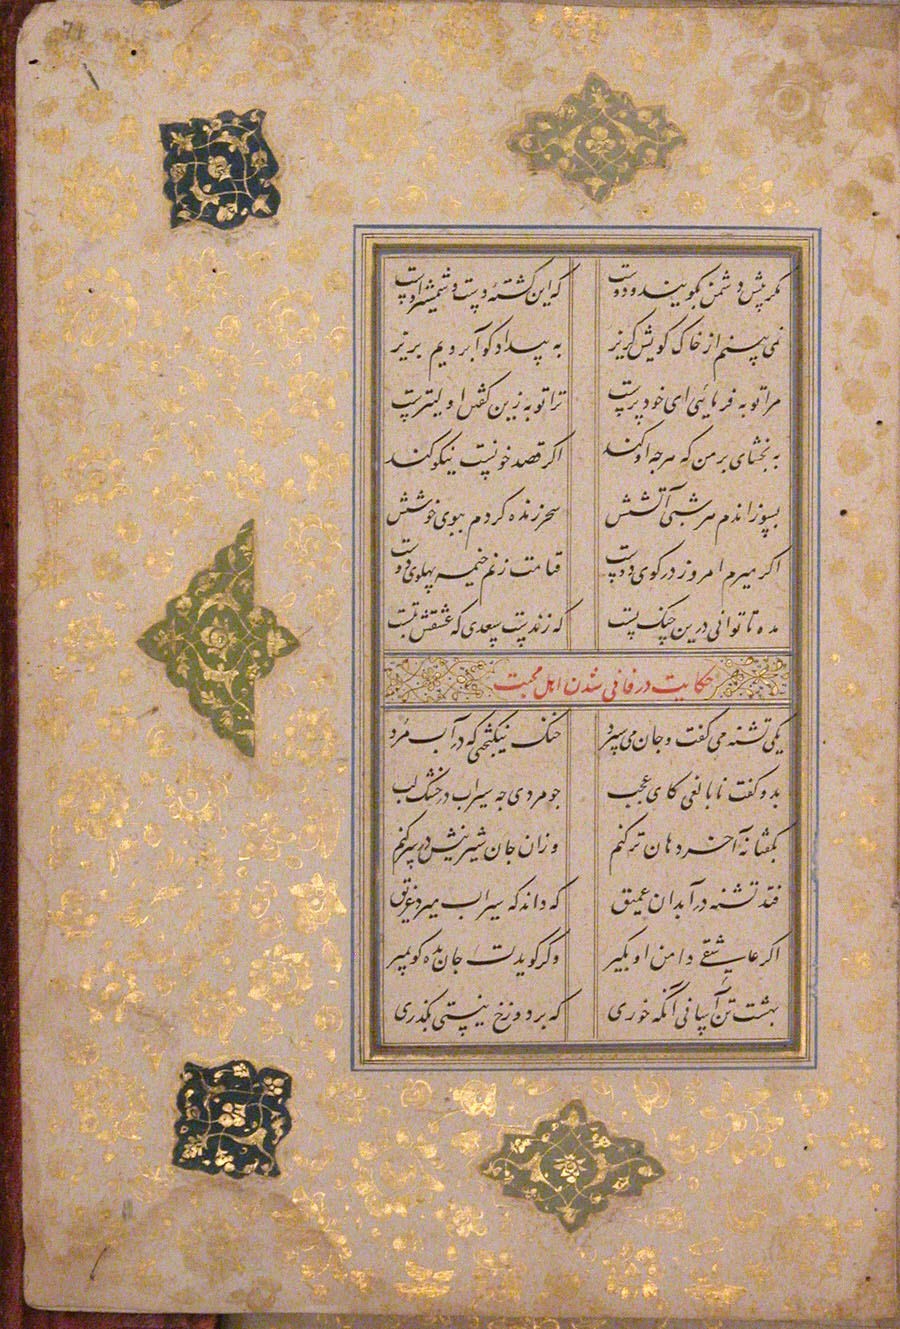 71
مکر پیش دشمن بگویند و دوست که این کشتهٔ دست و شمشیر اوست
نمی بینم از خاک کویش گریز به بیداد کو آبرویم بریز
مرا توبه فرمائی ای خود پرست ترا توبه زین گفتن اولیترست
به بخشای بر من که هرچه او کند اکر قصد خونست نیکو کند
بسوزاندم هر شبی آتشش سحر زنده کردم ببوی خوشش
اکر میرم امروز در کوی دوست قیامت زنم خیمه پهلوی دوست
مده تا توانی درین جنک پشت که زندست سعدی که عشقش
حکایت در فانی شدن اهل محبت
یکی تشنه می گفت و جان می سپرد خنک نیکبختی که در آب مرد
بدو گفت نابالغی کای عجب جو مردی چه سیراب خشک لب
بگفتا نه آخر دهان تر کنم وزان جان شیرینش در سر کنم
فتد تشنه در آبدان عمیق که داند که سیراب میرد غریق
اکر عاشقی دامن او بگیر وکر کویدت جان بده کو بگیر
بهشت تن آسانی آنگه خوری که بر دوزخ نیستی بگذری